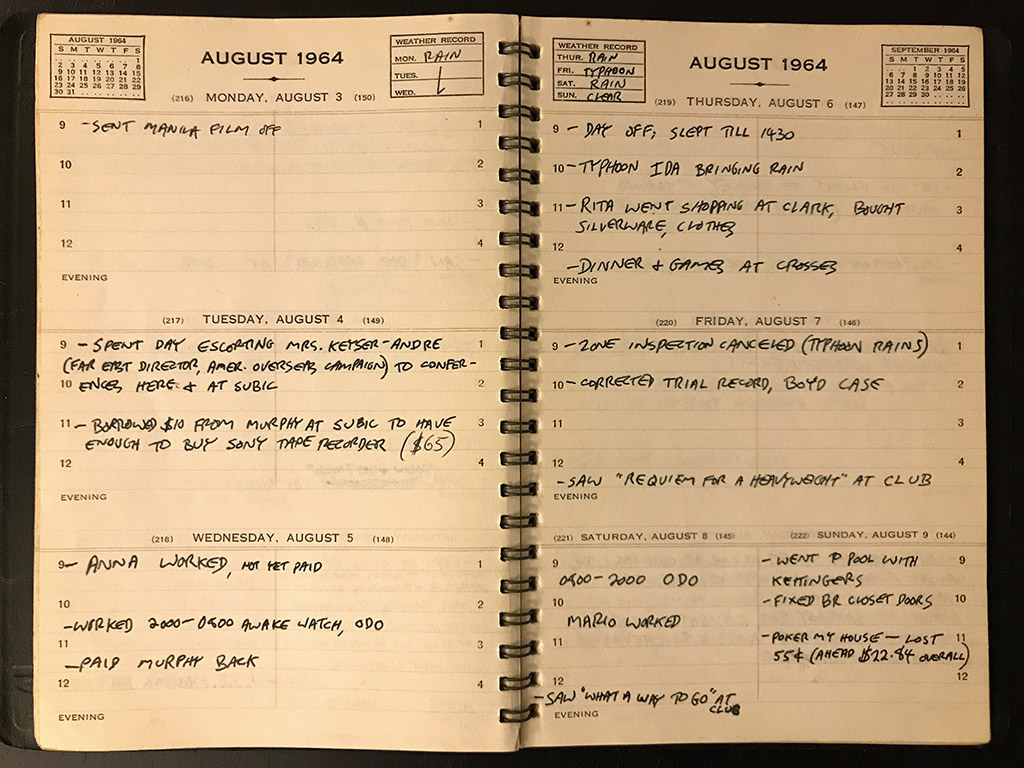 AUGUST 1964
S M T W T F S
1
2 3 4 5 6 7 8
9 10 11 12 13 14 15
16 17 18 19 20 21 22
23 24 25 26 27 28 29
30 31
AUGUST 1964
WEATHER RECORD
MON. RAIN
TUES. ↓
WED.
(216) MONDAY, AUGUST 3 (150)
9 - SENT MANILA FILM OFF 1
10 2
11 3
12 4
EVENING
(217) TUESDAY, AUGUST 4 (149)
9 - SPENT DAY ESCORTING MRS. KEYSER-ANDRE 1
(FAR EAST DIRECTOR, AMER. OVERSEAS CAMPAIGN) TO CONFER-
10 ENCES HERE & AT SUBIC 2
11 - BORROWED $10 FROM MURPHY AT SUBIC TO HAVE 3
ENOUGH TO BUY SONY TAPE RECORDER ($65)
12 4
EVENING
(218) WEDNESDAY, AUGUST 5 (148)
9 - ANNA WORKED, NOT YET PAID 1
10 2
- WORKED 2000-0800 AWAKE WATCH, ODO
11 3
- PAID MURPHY BACK
12 4
EVENING
WEATHER RECORD
THUR. RAIN
FRI. TYPHOON
SAT. RAIN
SUN. CLEAR
AUGUST 1964
SEPTEMBER 1964
S M T W T F S
1 2 3 4 5
6 7 8 9 10 11 12
13 14 15 16 17 18 19
20 21 22 23 24 25 26
27 28 29 30
(219) THURSDAY, AUGUST 6 (147)
9 - DAY OFF; SLEPT TILL 1430 1
10 - TYPHOON IDA BRINGING RAIN 2
11 - RITA WENT SHOPPING AT CLARK, BOUGHT 3
SILVERWARE, CLOTHES
12 4
- DINNER & GAMES AT CROSSES
EVENING
(220) FRIDAY, AUGUST 7 (146)
9 - ZONE INSPECTION CANCELED (TYPHOON RAINS) 1
10 - CORRECTED TRIAL RECORD, BOYD CASE 2
11 3
12 4
- SAW "REQUIEM FOR A HEAVYWEIGHT" AT CLUB
EVENING
(221) SATURDAY, AUGUST 8 (145)
9
0800-2000 ODO
10
MARIO WORKED
11
12
- SAW "WHAT A WAY TO GO" AT
CLUB
EVENING
(222) SUNDAY, AUGUST 9 (144)
- WENT TO POOL WITH 9
KETTINGERS
- FIXED BR CLOSET DOORS 10
- POKER MY HOUSE — LOST 11
55¢ (AHEAD $22.84 OVERALL)
12